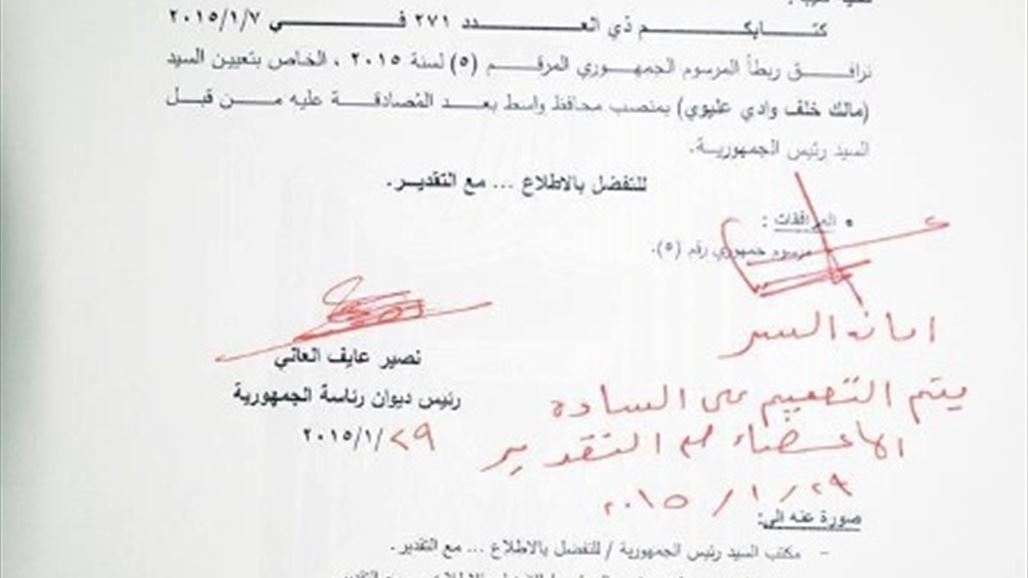 كتابكم ذي العدد ٢٧١ في ٢٠١٥/١/٧
نرافق ربطاً المرسوم الجمهوري المرقم (٥) لسنة ٢٠١٥ ، الخاص بتعيين السيد
(مالك خلف وادي عليوي) بمنصب محافظ واسط بعد المُصادقة عليه من قبل
السيد رئيس الجمهورية.
للتفضل بالاطلاع ... مع التقدير.
• المرافقات :
- مرسوم جمهوري رقم (٥).
نصير عايف العاني
رئيس ديوان رئاسة الجمهورية
٢٠١٥/١/٢٩
امانة السر
يتم التعميم على السادة
الاعضاء مع التقدير
٢٠١٥/١/٢٩
صورة عنه الى:
- مكتب السيد رئيس الجمهورية / للتفضل بالاطلاع ... مع التقدير.